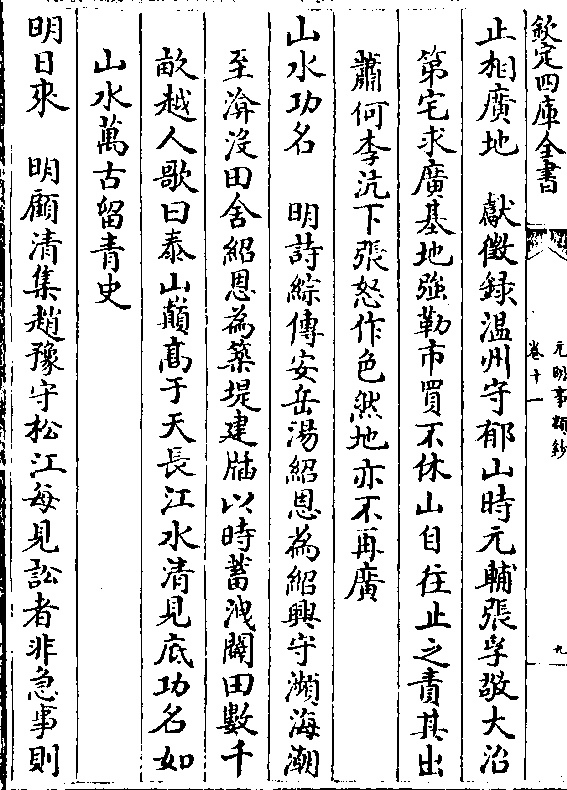 欽定四庫全書
元明事類鈔
卷十一
九
止相廣地　獻徵録温州守郁山時元輔張孚敬大治
第宅求廣基地強勒市買不休山自往止之責其出
蕭何李沆下張怒作色然地亦不再廣
山水功名　明詩綜傳安岳湯紹恩為紹興守瀕海潮
至渰沒田舍紹恩為築堤建牐以時蓄洩闢田數千
畝越人歌曰泰山巔高于天長江水清見底功名如
山水萬古留青史
明日來　明顧清集趙豫守松江每見訟者非急事則